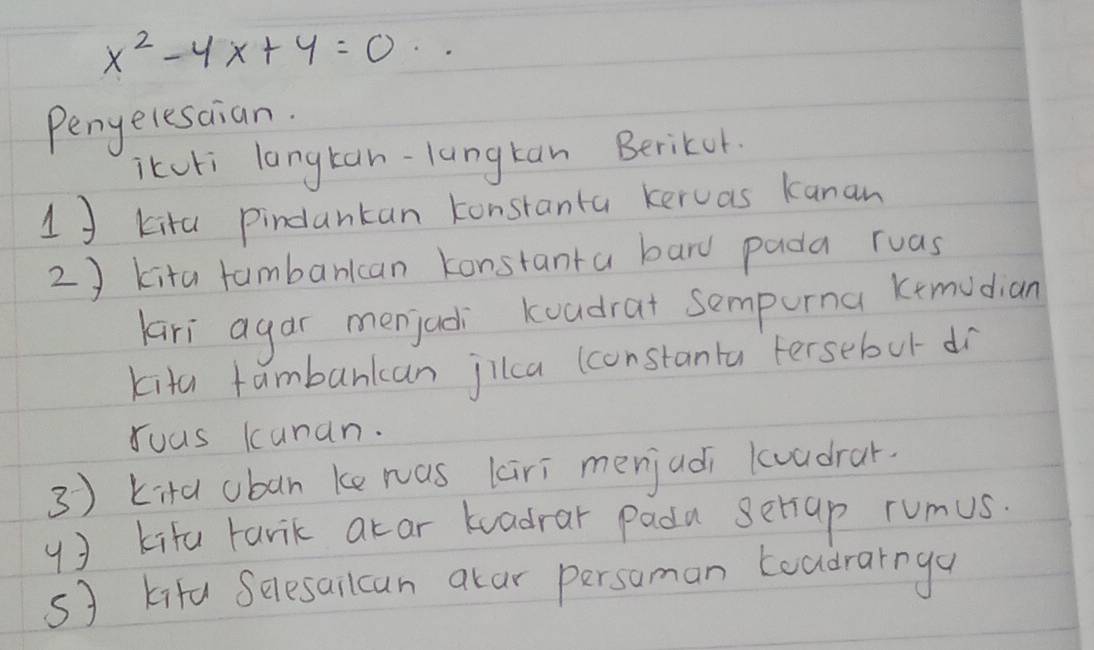 x² - 4x + 4 = 0 . .
Penyelesaian.
ikuti langkah-langkah Berikut.
1) kita pindahkan konstanta keruas kanan
2) kita tambahkan konstanta baru pada ruas
kiri agar menjadi kuadrat sempurna kemudian
kita tambahkan jika konstanta tersebut di
ruas kanan.
3) kita ubah ke ruas kiri menjadi kuadrat.
4) kita tarik akar kuadrat pada setiap rumus.
5) kita selesaikan akar persaman kuadratnya